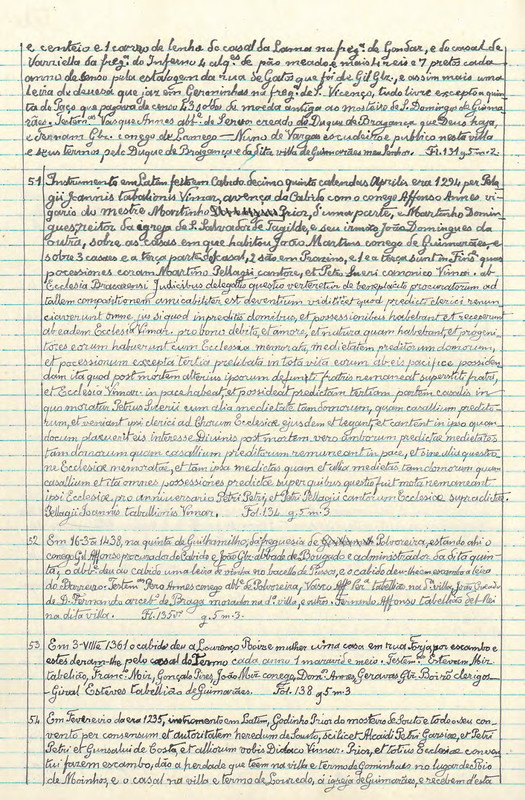 e centeio e 1 carro de lenha do casal da Lama na freg.ª de Gondar, e do casal de
Varziella da freg.ª do Inferno 4 alq.es de pão meado, e mais 1 reis e 7 pretos cada
anno de censo pela estalagem da rua de Gatos que foi de Gil Glz., e assim mais uma
leira de devesa que jaz em Geraminhos na freg.ª de S. Vicenço, tudo livre excepto a quin-
ta do Paço que pagava de censo 23 soldos de moeda antiga ao mosteiro de S. Domingos de Guima-
rães. Testem.as Vasque Annes abb.e de creado do Duque de Bragança que Deus haja,
e Fernam Glz. conego de Lamego — Nuno de Vargas escudeiro e publico nesta villa
e seus termos, pelo Duque de Bragança e da dita villa de Guimarães meu senhor. Fl. 131 g 5 m. 2
51 Instrumento em Latim feito em Cabido decimo quinto calendas Aprilis era 1294 per Pela-
gii Joannis tabalionis Vimar, avença do Cabido com o conego Affonso Annes vi-
gario du mestre Martinho Prior, d'uma parte, e Martinho Domin-
gues reitor da egreja de S. Salvador de Fagilde, e seu irmão João Domingues da
outra, sobre as casas em que habitou João Martins conego de Guimarães, e
sobre 3 casaes e a terça parte d'o casal, 2 são em Prazins, e 1 e a terça sunt in Fins, quas
pocesiones coram Martino Pellagii cantore, et Petro Sueri canonico Vimar. ab
Ecclesia Bracarensi Judicibus delegatis questio verteretur de beneplacito procuratorum ad
tallem compositionem amicabiliter est deventium viditicet quod predicti clerici renun-
ciaverunt omne jus siquod inpreditis domibus, et possessionibus habebant et receperunt
ab eadem Ecclesia Vimar. pro bono debito, et amore, et natura quam habebant, et progeni-
tores eorum habuerunt cum Ecclesia memorata, medietatem preditorum domorum,
et pocessionum excepta tertia prelibata in tota vita eorum ab eis pacifice possiden-
dam ita quod post mortem alterius ipsorum defuncto fratris remaneat superstiti fratri,
et Ecclesia Vimar. in pace habeat, et possideat predictam tertiam partem casalis in
quo moratur Petrus Suerii cum alia medietate tam domorum, quam casallium predicto-
rum, et veniant ipsi clerici ad Chorum Ecclesiae ejusdem et legant, et cantent in ipso quan-
docum placuerit eis interesse Divinis post mortem vero amborum predictæ medietates
tam domorum quam casallium preditorum remaneant in pace, et sine alia questio-
ne Ecclesiae memoratae, et tam ipsa medietas quam et alia medietas tam domorum quam
casallium et ita omnes possessiones predictæ super quibus questio fuit mota remaneant
ipsi Ecclesiae pro anniversario Petri Petri, et Petri Pellagii cantorum Ecclesiae supradictæ.
Pellagii Joannis taballionis Vimar. Fol. 134 g. 5 m. 3
52 Em 16-3.º 1438, na quinta de Guilhamilho, da freguesia de Polvoreira, estando ahi o
conego Gil Affonso procurador do Cabido e João Glz. abbade de Brugado e administrador da dita quin-
ta, o abb.e deu ao cabido uma leira de vinha no bacello do Passo, e o cabido deu-lhe em escambo a leira
do Barreiro. Testem.as Pero Annes conego abb.e de Polvoreira, Vasco Aff.º tabellião na d.ª villa, João
de D. Fernando arceb.º de Braga morador na d.ª villa, e outros. Fernando Affonso tabellião del-Rei
na dita villa. Fl. 135v.º g. 5 m. 3.
53 Em 3-VIII.º 1361 o cabido deu a Lourenço Roiz e mulher uma casa em rua Forja por escambo e
estes deram-lhe pelo casal do Termo cada anno 1 maravedi e meio. Testem.as Estevam Miz.
tabelião, Franc.º Miz, Gonçalo Pires, João Miz conego, Dom.os Annes, Geraldo Glz. Bairro clerigos —
Giral Esteves tabellião de Guimarães. Fol. 138 g 5 m 3
54 Em Fevereiro da era 1235, instrumento em Latim, Godinho Prior do mosteiro de Souto e todo o seu con-
vento per consensum et autoritatem heredum de Souto, scilicet Alcaidi Petri Garsiae, et Petri
Petri et Gunsalui de Costa, et alliorum vobis Didaco Vimar. Prior, et totius Ecclesiæ conven-
tui fazem escambo, dão a herdade que teem na villa e termo de Gominhães no lugar de Poio
de Moinhos, e o casal na villa e termo de Louredo, á igreja de Guimarães, e recebem d'esta